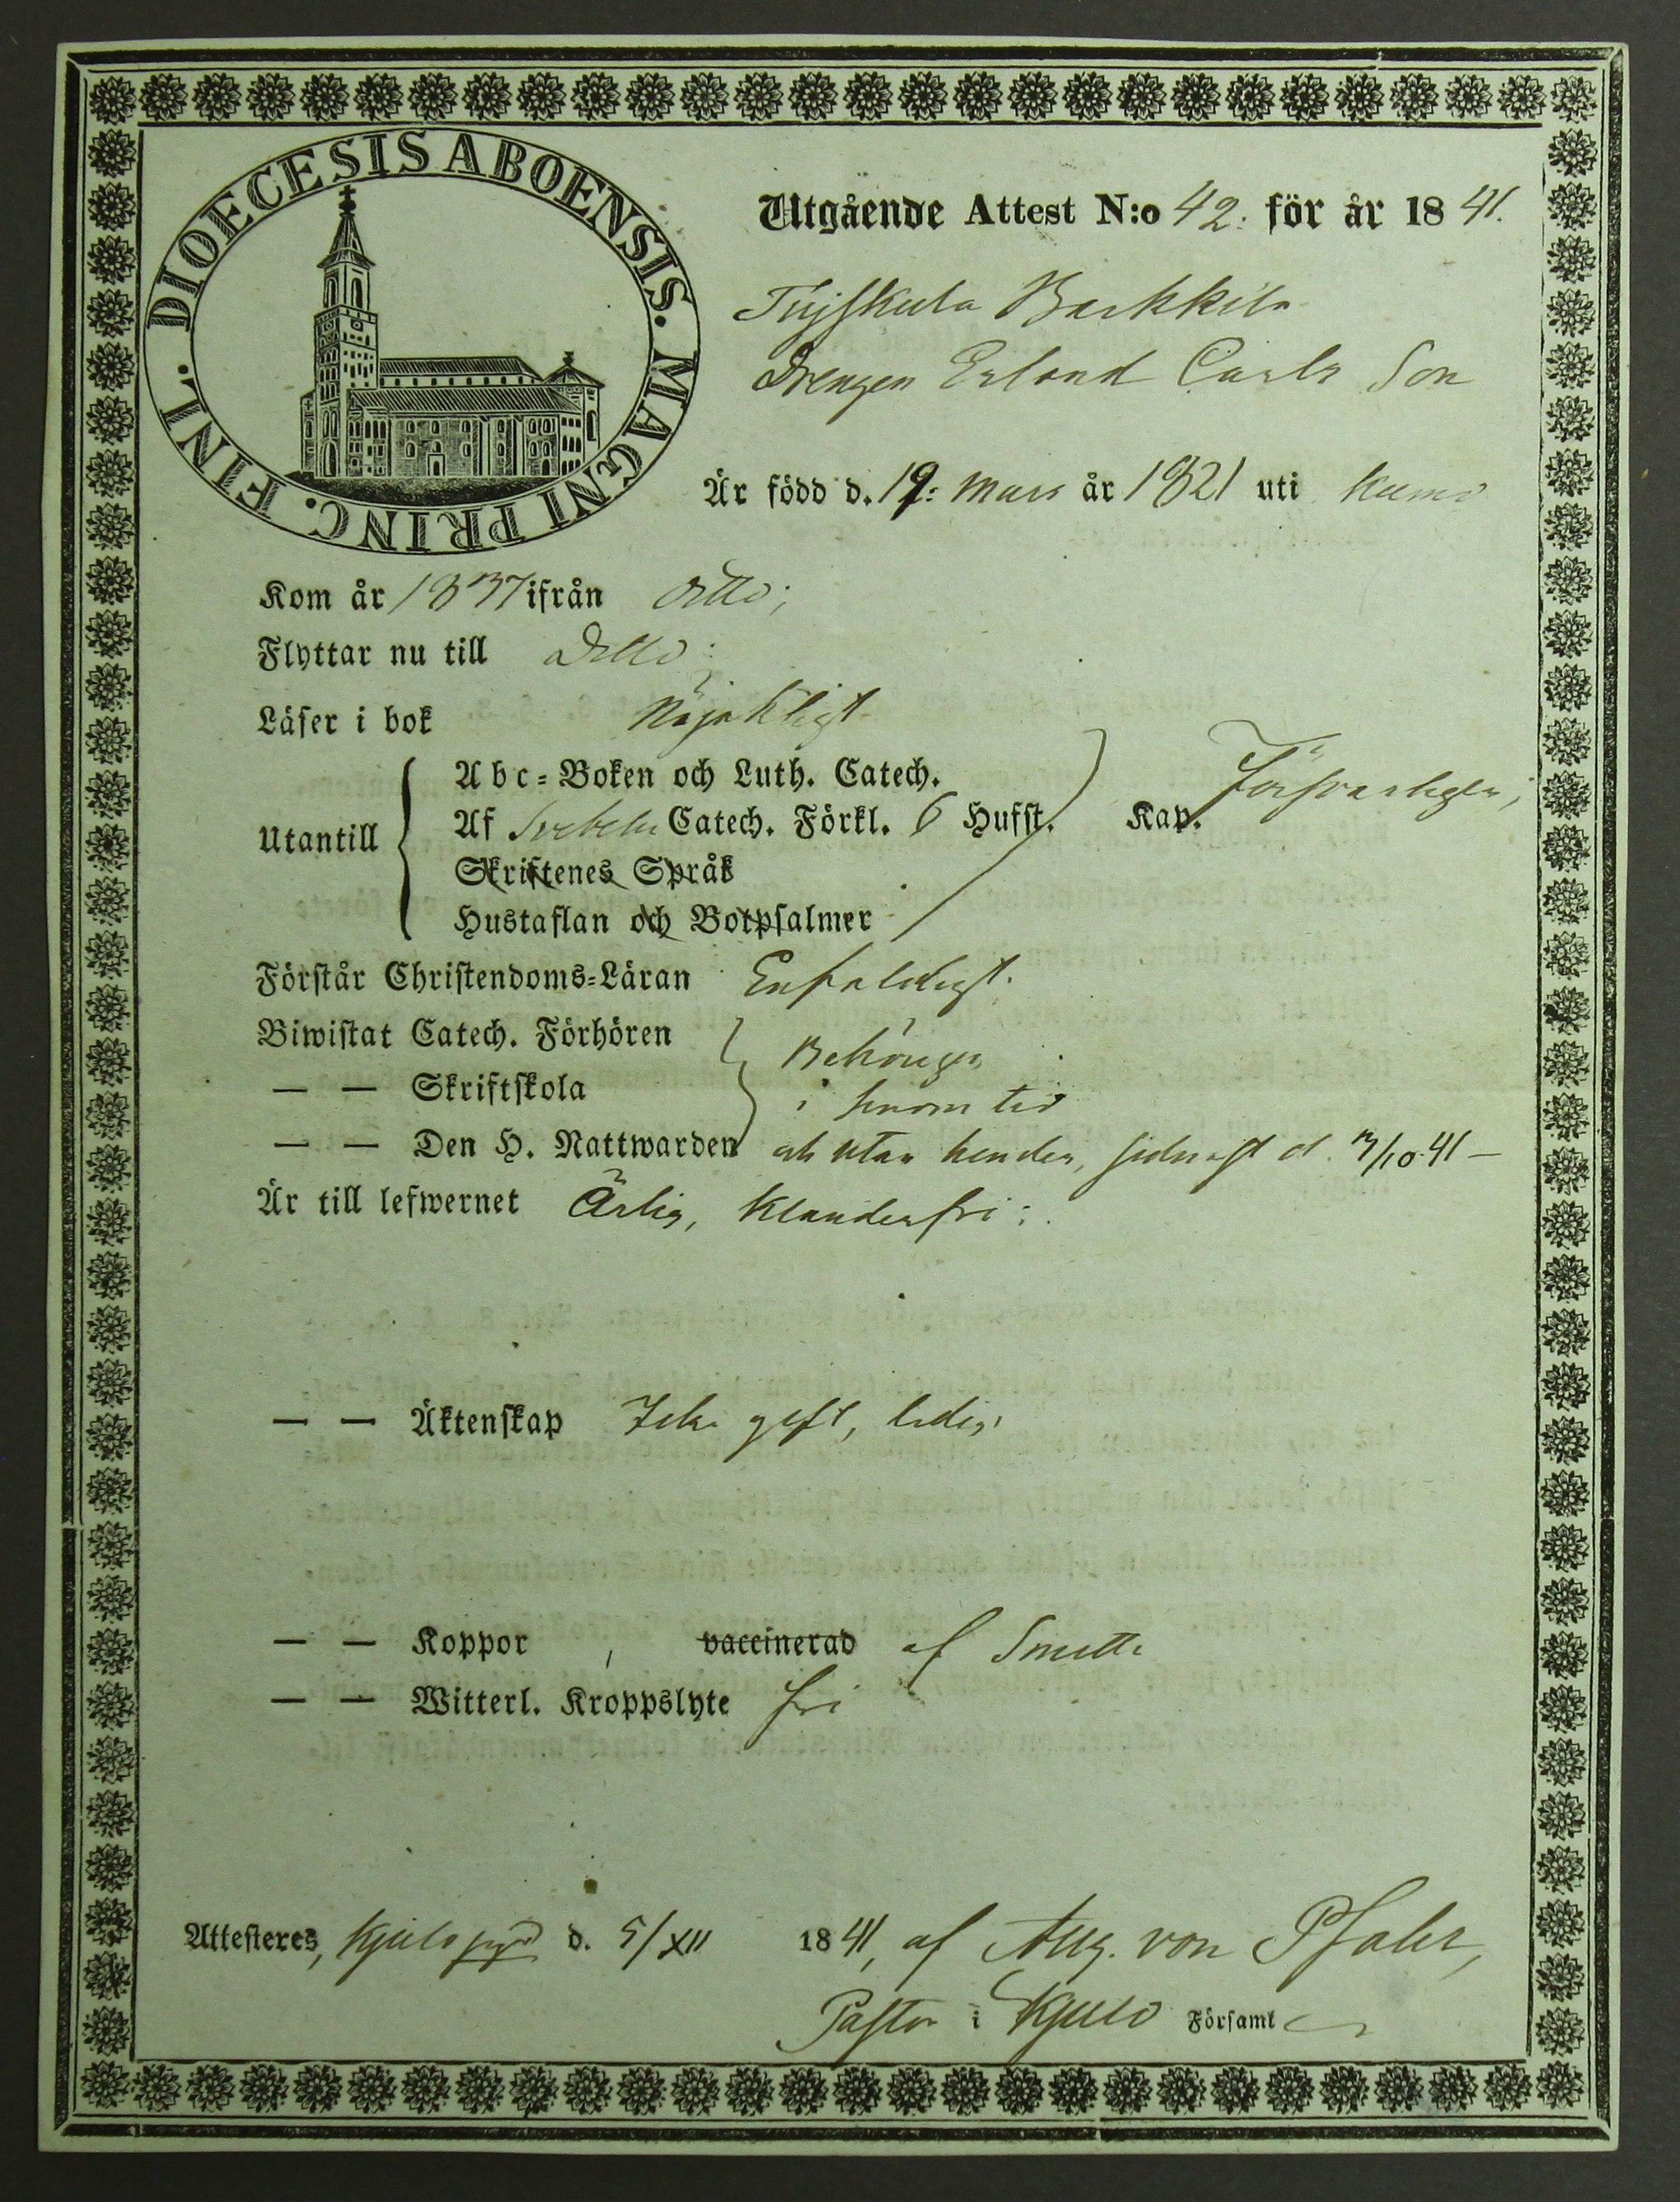 DIOECESIS ABOENSIS. MAGNI PRINC. FINL.
Utgående Attest N:o 42. för år 1841.
Drengen Erland Carls Son
Är född d. 19: Mars år 1821 uti Kumo
Kom år 1837 ifrån ditto;
Flyttar nu till Ditto:
Läser i bok Nöjaktligt
Abc=Boken och Luth. Catech.
Utantill Af Svebelii Catech. Förkl. 6 Hufst. Kap. Försvarligen,
Skriftenes Språk
Hustaflan och Botpsalmer
Förstår Christendoms=Läran Enfaldigt.
Biwistat Catech. Förhören Behörigen
— — Skriftskola i sinom tid
— — Den H. Nattwarden och utan hinder, sidnast d. 3/10 41 —
Är till lefwernet Ärlig, Klanderfri:
— — Äktenskap Icke gift, ledig
— — Koppor, vaccinerad af Smitta
— — Witterl. Kroppslyte fri
Attesteres, d. 5/XII 1841, af Aug. von Pfaler,
Pastor i Kjulo Församl